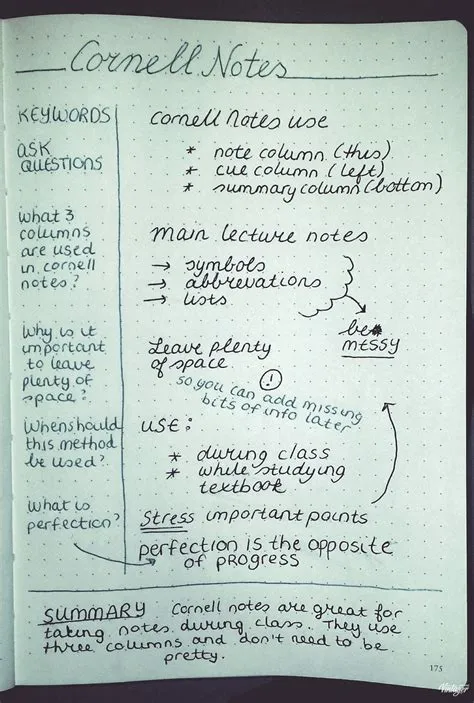 Cornell Notes
KEYWORDS
ASK
QUESTIONS
what 3
columns
are used
in cornell
notes?
Why is it
important
to leave
plenty of
space?
When should
this method
be used?
What is
perfection?
cornell notes use
* note column (this)
* cue column (left)
* summary column (bottom)
main lecture notes
→ symbols
→ abbrevations
→ lists
be
messy
Leave plenty
of space
!
so you can add missing
bits of info later
use:
* during class
* while studying
textbook
Stress important points
perfection is the opposite
of progress
SUMMARY Cornell notes are great for
taking notes during class. They use
three columns and don't need to be
pretty.
175